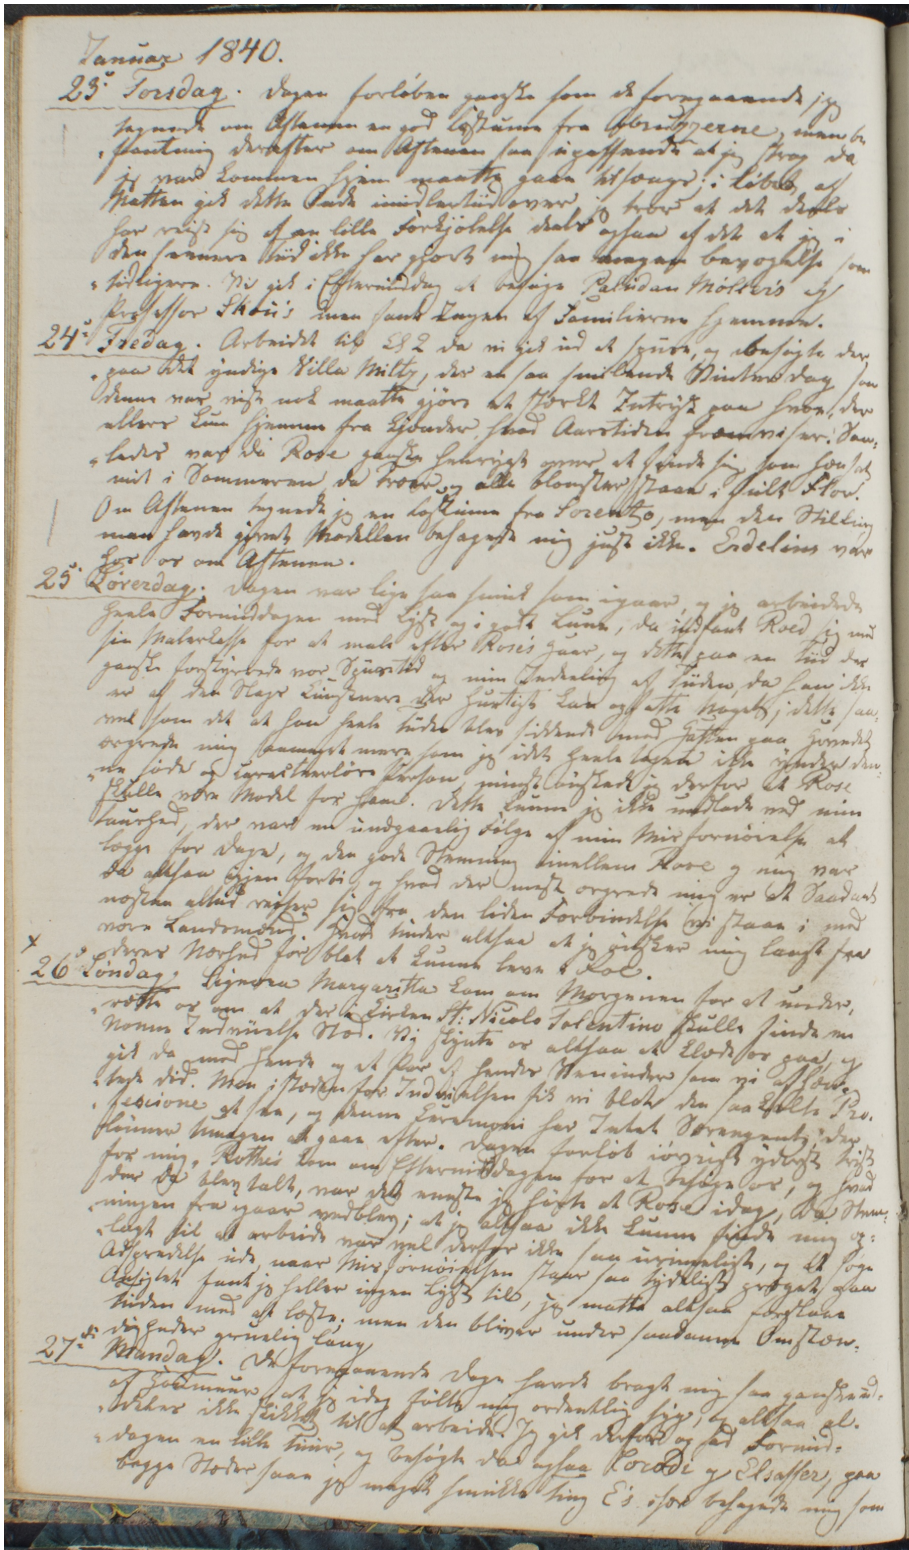 Januar 1840.
23. Torsdag. Dagen forløben ganske som de foregaaende jeg
tegnede om Aftenen en god Costume fra Abruzzerne, men be
fandt mig derefter om Aftenen saa upassende at jeg strax da
jeg var kommen hjem maatte gaae tilsengs; i Løbet af
Natten gik dette Onde imidlertid over jeg troer at det deels
har reist sig af en lille Forkjølelse deels ogsaa af det at jeg i
den senere Tid ikke har gjort mig saa megen bevægelse som
tidligere. Vi gik i Eftermiddag at besøge Paludan Müllers og
Professor Skou's men fandt Ingen af Familierne hjemme.
24. Fredag. Arbeidet til Kl 2 da vi gik ud at spise, og besøgte der
paa det yndige Villa Miltz, der en saa smilende Vinterdag som
denne var vist nok maatte gjøre et stærkt Indtryk paa hver, der
ellers kun hjemme fra kjender, hvad Aarstiden fremviser. Saa-
ledes var da Rose ganske henrykt over at finde sig som hensat
midt i Sommeren, da Træer og alle blomster staae i fuldt Flor.
Om Aftenen tegnede jeg en Costume fra Sorento, men den Stilling
man havde givet Modellen behagede mig just ikke. Erdelius var
hos os om Aftenen.
25. Løverdag. Dagen var lige saa smuk som igaar, og jeg arbeidede
heele Formiddagen med Lyst og i godt Lune, da indfandt Roed sig med
sin Malerkasse for at male efter Roses Haar, og dette paa en Tiid der
ganske forstyrrede vor Spisetid og min Inddeling af Tiden, da han ikke
er af den Slags Kunstnere der hurtigt kan opfatte Noget; dette saa-
vel som det at han heele tiden blev siddende med Hatten paa Hovedet
ærgrede mig saameget mere som jeg idet heele taget ikke ynder den-
ne søde og caracteerløse Person, mindst ønskede jeg derfor at Rose
skulle være Model for ham. Dette kunne jeg ikke undlade ved min
Taushed, der var en undgaaelig Følge af min Misfornøielse at
lægge for Dagen, og den gode Stemning imellem Rose og mig var
da altsaa igjen forbi og hvad der mest ærgrede mig er at Saadant
næsten altid reiser sig fra den liden Forbindelse vi staae i med
vore Landsmænd. Hvad Under altsaa at jeg ønsker mig langt fra
deres Nærhed for blot at kunne leve i Roe.
26. Søndag. Signora Margaritta kom om Morgenen for at under,
rette os om at der i Kirken St: Nicolo Tolentino skulle finde en
Nonne Indvielse Sted. Vi skyndte os altsaa at klæde os paa og
gik da med hende og et Par af hendes Veninder som vi afhen-
tede did. Men i stedet for Indvielsen fik vi blot den saakaldte Pro-
fescione at see, og denne Ceremoni har Intet Særegent, der
lønner Umagen at gaae efter. Dagen forløb iøvrigt yderst trist
for mig, Rothe's kom om Eftermiddagen for at besøge os, og hvad
der da blev talt, var det eneste jeg hørte at Rose idag, da Stem-
ningen fra igaar vedblev; at jeg altsaa ikke kunne finde mig op-
lagt til at arbeide var vel derfor ikke saa urimeligt, og at søge
Adspredelse ude, naar Misfornøielsen staar saa tydeligt præget paa
Ansigtet fandt jeg heller ingen Lyst til, jeg maatte altsaa forslaae
Tiden med at læse; men den bliver under saadanne Omstæn-
digheder gruelig lang
27. Mandag. De foregaaende Dage havde bragt mig saa ganske ud-
af Humeur, at jeg idag følte mig ordentlig syg, og altsaa al-
deles ikke skikket til at arbeide. Jeg gik derfor og saa Formid-
dagen en lille Tuur, og besøgte da ogsaa Corodi og Elsasser, paa
begge Steder saae jeg meget smukke Ting E's især behagede mig som